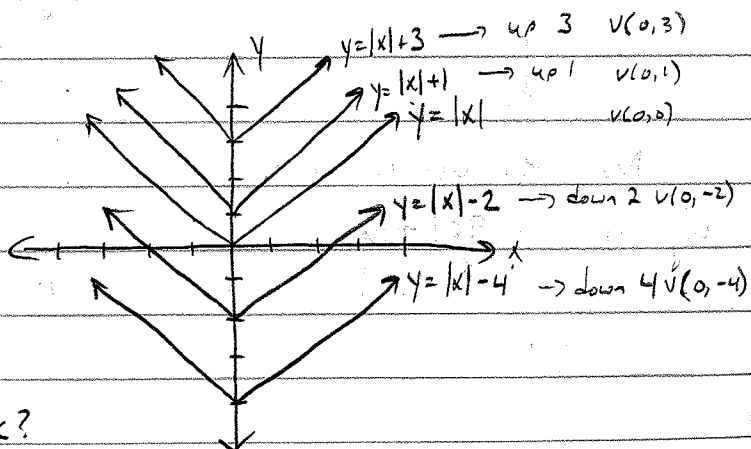 Y
y=|x|+3 → up 3 V(0,3)
y=|x|+1 → up 1 V(0,1)
y=|x| V(0,0)
y=|x|-2 → down 2 V(0,-2)
x
y=|x|-4 → down 4 V(0,-4)
?